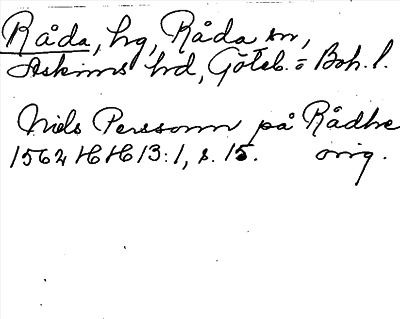 Råda, hg, Råda sn,
Askims hd, Göteb. = Boh. l.
Niels Perssonn på Rådhe
1562 HH 13:1, s. 15. orig.